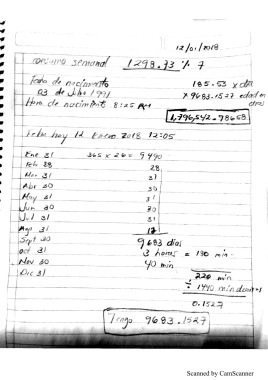 12/01/2018
consumo semanal 1298.73 % 7
Fecha de nacimiento 185.53 x dia
03 de Julio 1991 x 9683.1527 edad en dias
Hora de nacimiento 8:25 AM
1,796,542.98658
Fecha hoy 12 Enero 2018 12:05
Ene 31 365 x 26 = 9490
Feb 28 28
Mar 31 31
Abr 30 30
May 31 31
Jun 30 30
Jul 31 31
Ago 31 12
Sept 30 9683 días
oct 31 3 horas = 180 min
Nov 30 40 min
Dic 31 220 min
÷ 1440 min
0.1527
Tengo 9683.1527
Scanned by CamScanner